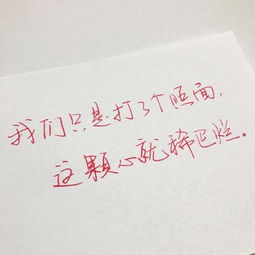 我们只是打了个照面,
这颗心就稀巴烂。